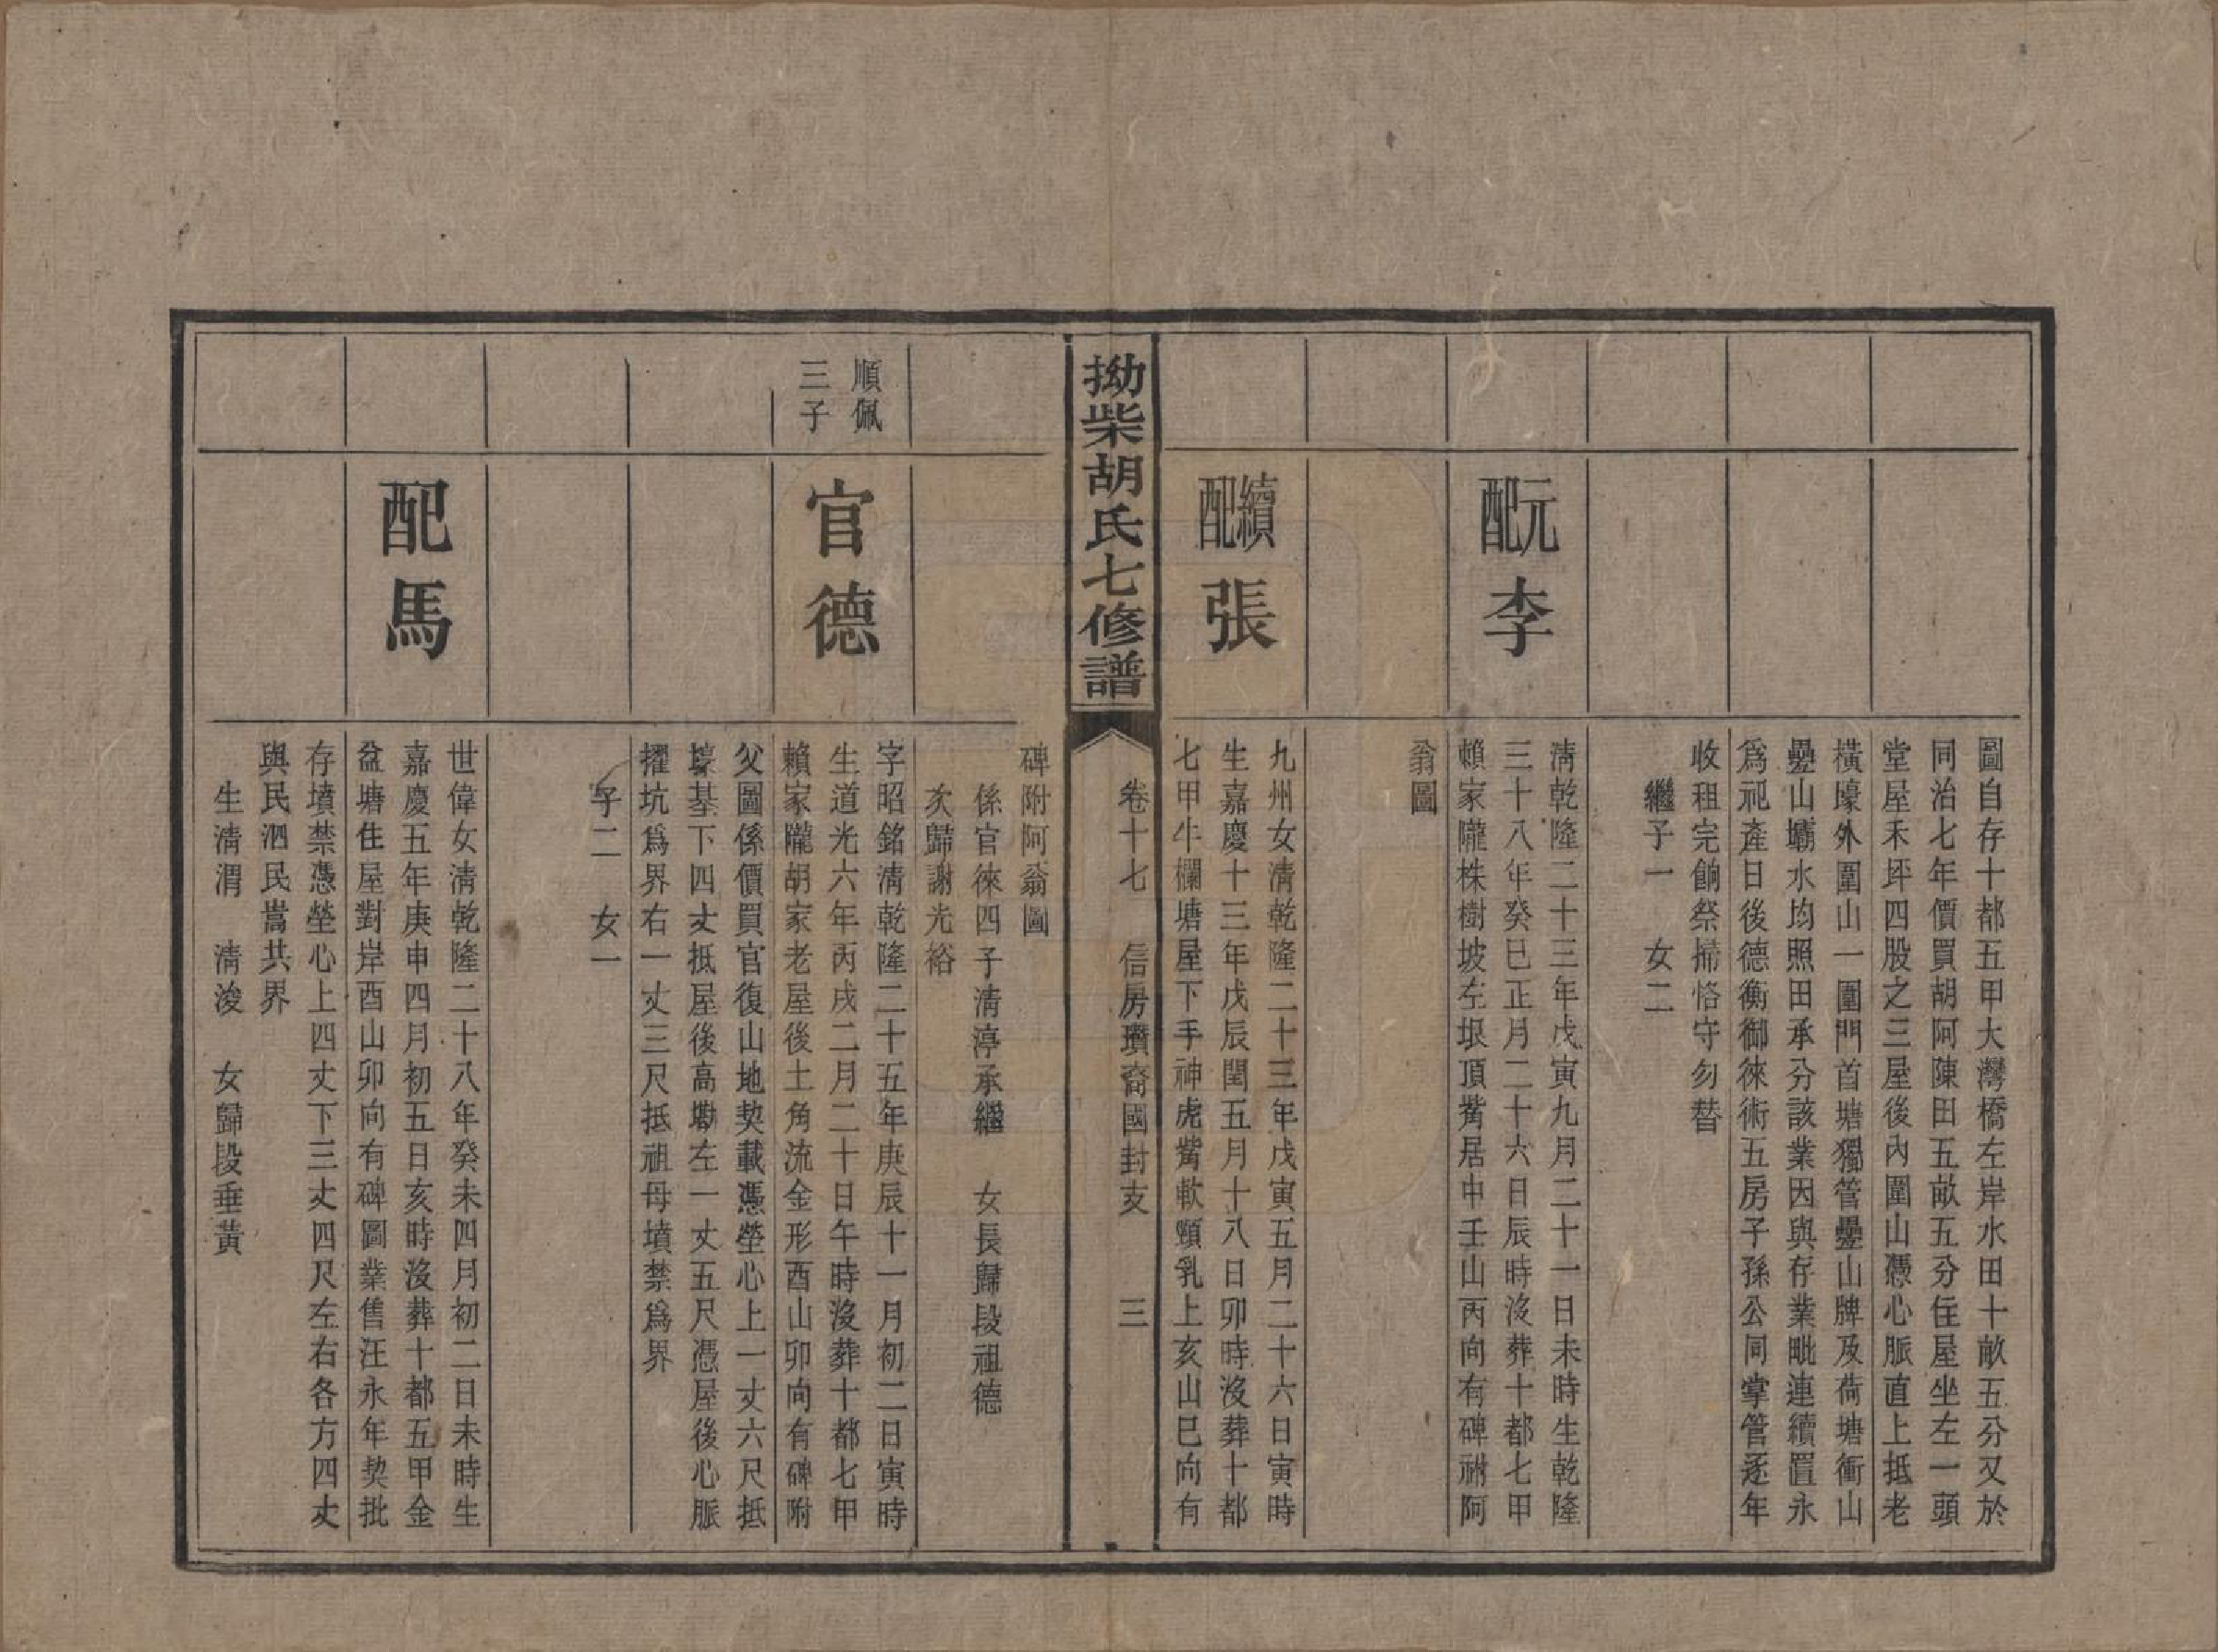 圖自存十都五甲大灣橋左岸水田十畝五分又於
同治七年價買胡阿陳田五畝五分住屋坐左一頭
堂屋禾坪四股之三屋後內圍山憑心脈直上抵老
橫壕外圍山一圍門首塘獨管壘山牌及荷塘衝山
壘山壩水均照田承分該業因與存業毗連續置永
爲祀產日後德衡御徠術五房子孫公同掌管逐年
收租完餉祭掃恪守勿替
繼子一　女二
元配李
淸乾隆二十三年戊寅九月二十一日未時生乾隆
三十八年癸巳正月二十六日辰時沒葬十都七甲
賴家隴株樹坡左垠頂觜居中壬山丙向有碑祔阿
翁圖
續配張
九州女淸乾隆二十三年戊寅五月二十六日寅時
生嘉慶十三年戊辰閏五月十八日卯時沒葬十都
七甲牛欄塘屋下手神虎觜軟頸乳上亥山巳向有
拗柴胡氏七修譜
卷十七　信房瓚裔國封支　三
碑附阿翁圖
係官徠四子淸渟承繼　女長歸段祖德
次歸謝光裕
順佩
三子
官德
字昭銘淸乾隆二十五年庚辰十一月初二日寅時
生道光六年丙戌二月二十日午時沒葬十都七甲
賴家隴胡家老屋後土角流金形酉山卯向有碑附
父圖係價買官復山地契載憑塋心上一丈六尺抵
壕基下四丈抵屋後高墈左一丈五尺憑屋後心脈
擢坑爲界右一丈三尺抵祖母墳禁爲界
子二　女一
配馬
世偉女淸乾隆二十八年癸未四月初二日未時生
嘉慶五年庚申四月初五日亥時沒葬十都五甲金
盆塘住屋對岸酉山卯向有碑圖業售汪永年契批
存墳禁憑塋心上四丈下三丈四尺左右各方四丈
與民泗民嵩共界
生淸淠　淸浚　女歸段垂黃